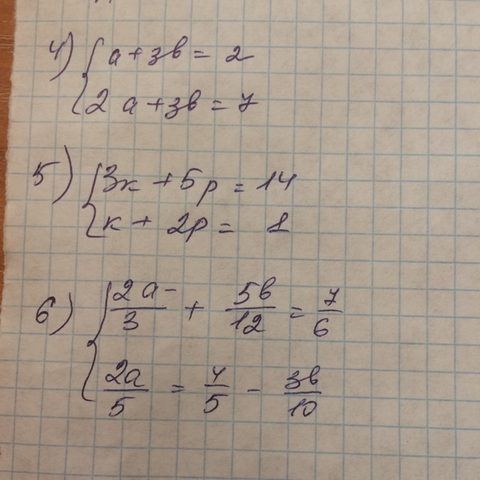 4) { a + 3b = 2
2a + 3b = 7
5) { 3k + 5p = 14
k + 2p = 1
6) { 2a/3 + 5b/12 = 7/6
2a/5 = 4/5 - 3b/10